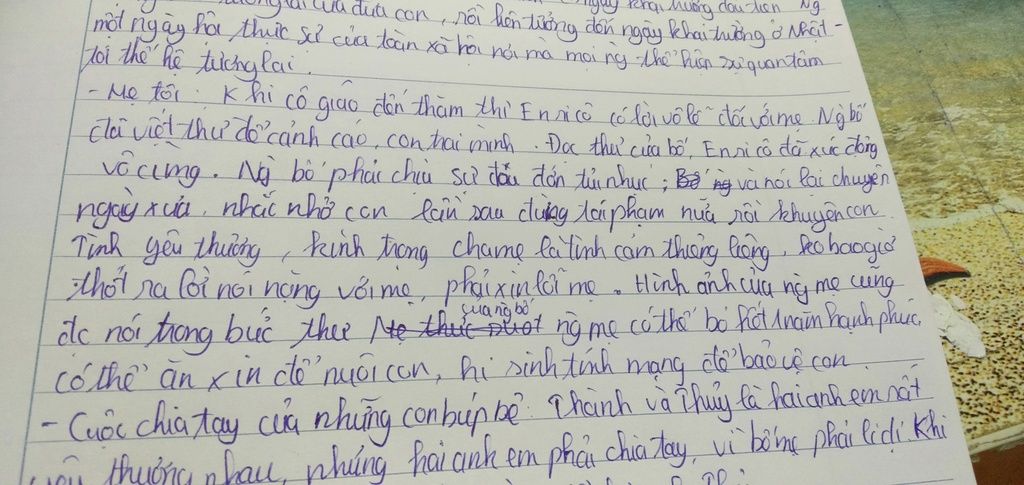 tương lai của đứa con, rồi liên tưởng đến ngày khai trường ở Nhật -
một ngày hội thực sự của toàn xã hội nơi mà mọi ng thể hiện sự quan tâm
tới thế hệ tương lai.
- Mẹ tôi: Khi cô giáo đến thăm thì Enricô có lời vô lễ đối với mẹ. Ng bố
đã viết thư để cảnh cáo, con trai mình. Đọc thư của bố, Enricô đã xúc động
vô cùng. Ng bố phải chịu sự đau đớn tủi nhục; và nói lại chuyện
ngày xưa, nhắc nhở con lần sau đừng tái phạm nữa rồi khuyên con.
Tình yêu thương, kính trọng cha mẹ là tình cảm thiêng liêng, ko bao giờ
thốt ra lời nói nặng với mẹ, phải xin lỗi mẹ. Hình ảnh của ng mẹ cũng
đc nói trong bức thư của ng bố ng mẹ có thể bỏ hết 1 năm hạnh phúc,
có thể ăn xin để nuôi con, hi sinh tính mạng để bảo vệ con.
- Cuộc chia tay của những con búp bê: Thành và Thủy là hai anh em rất
yêu thương nhau, nhưng hai anh em phải chia tay, vì bố mẹ phải li dị. Khi